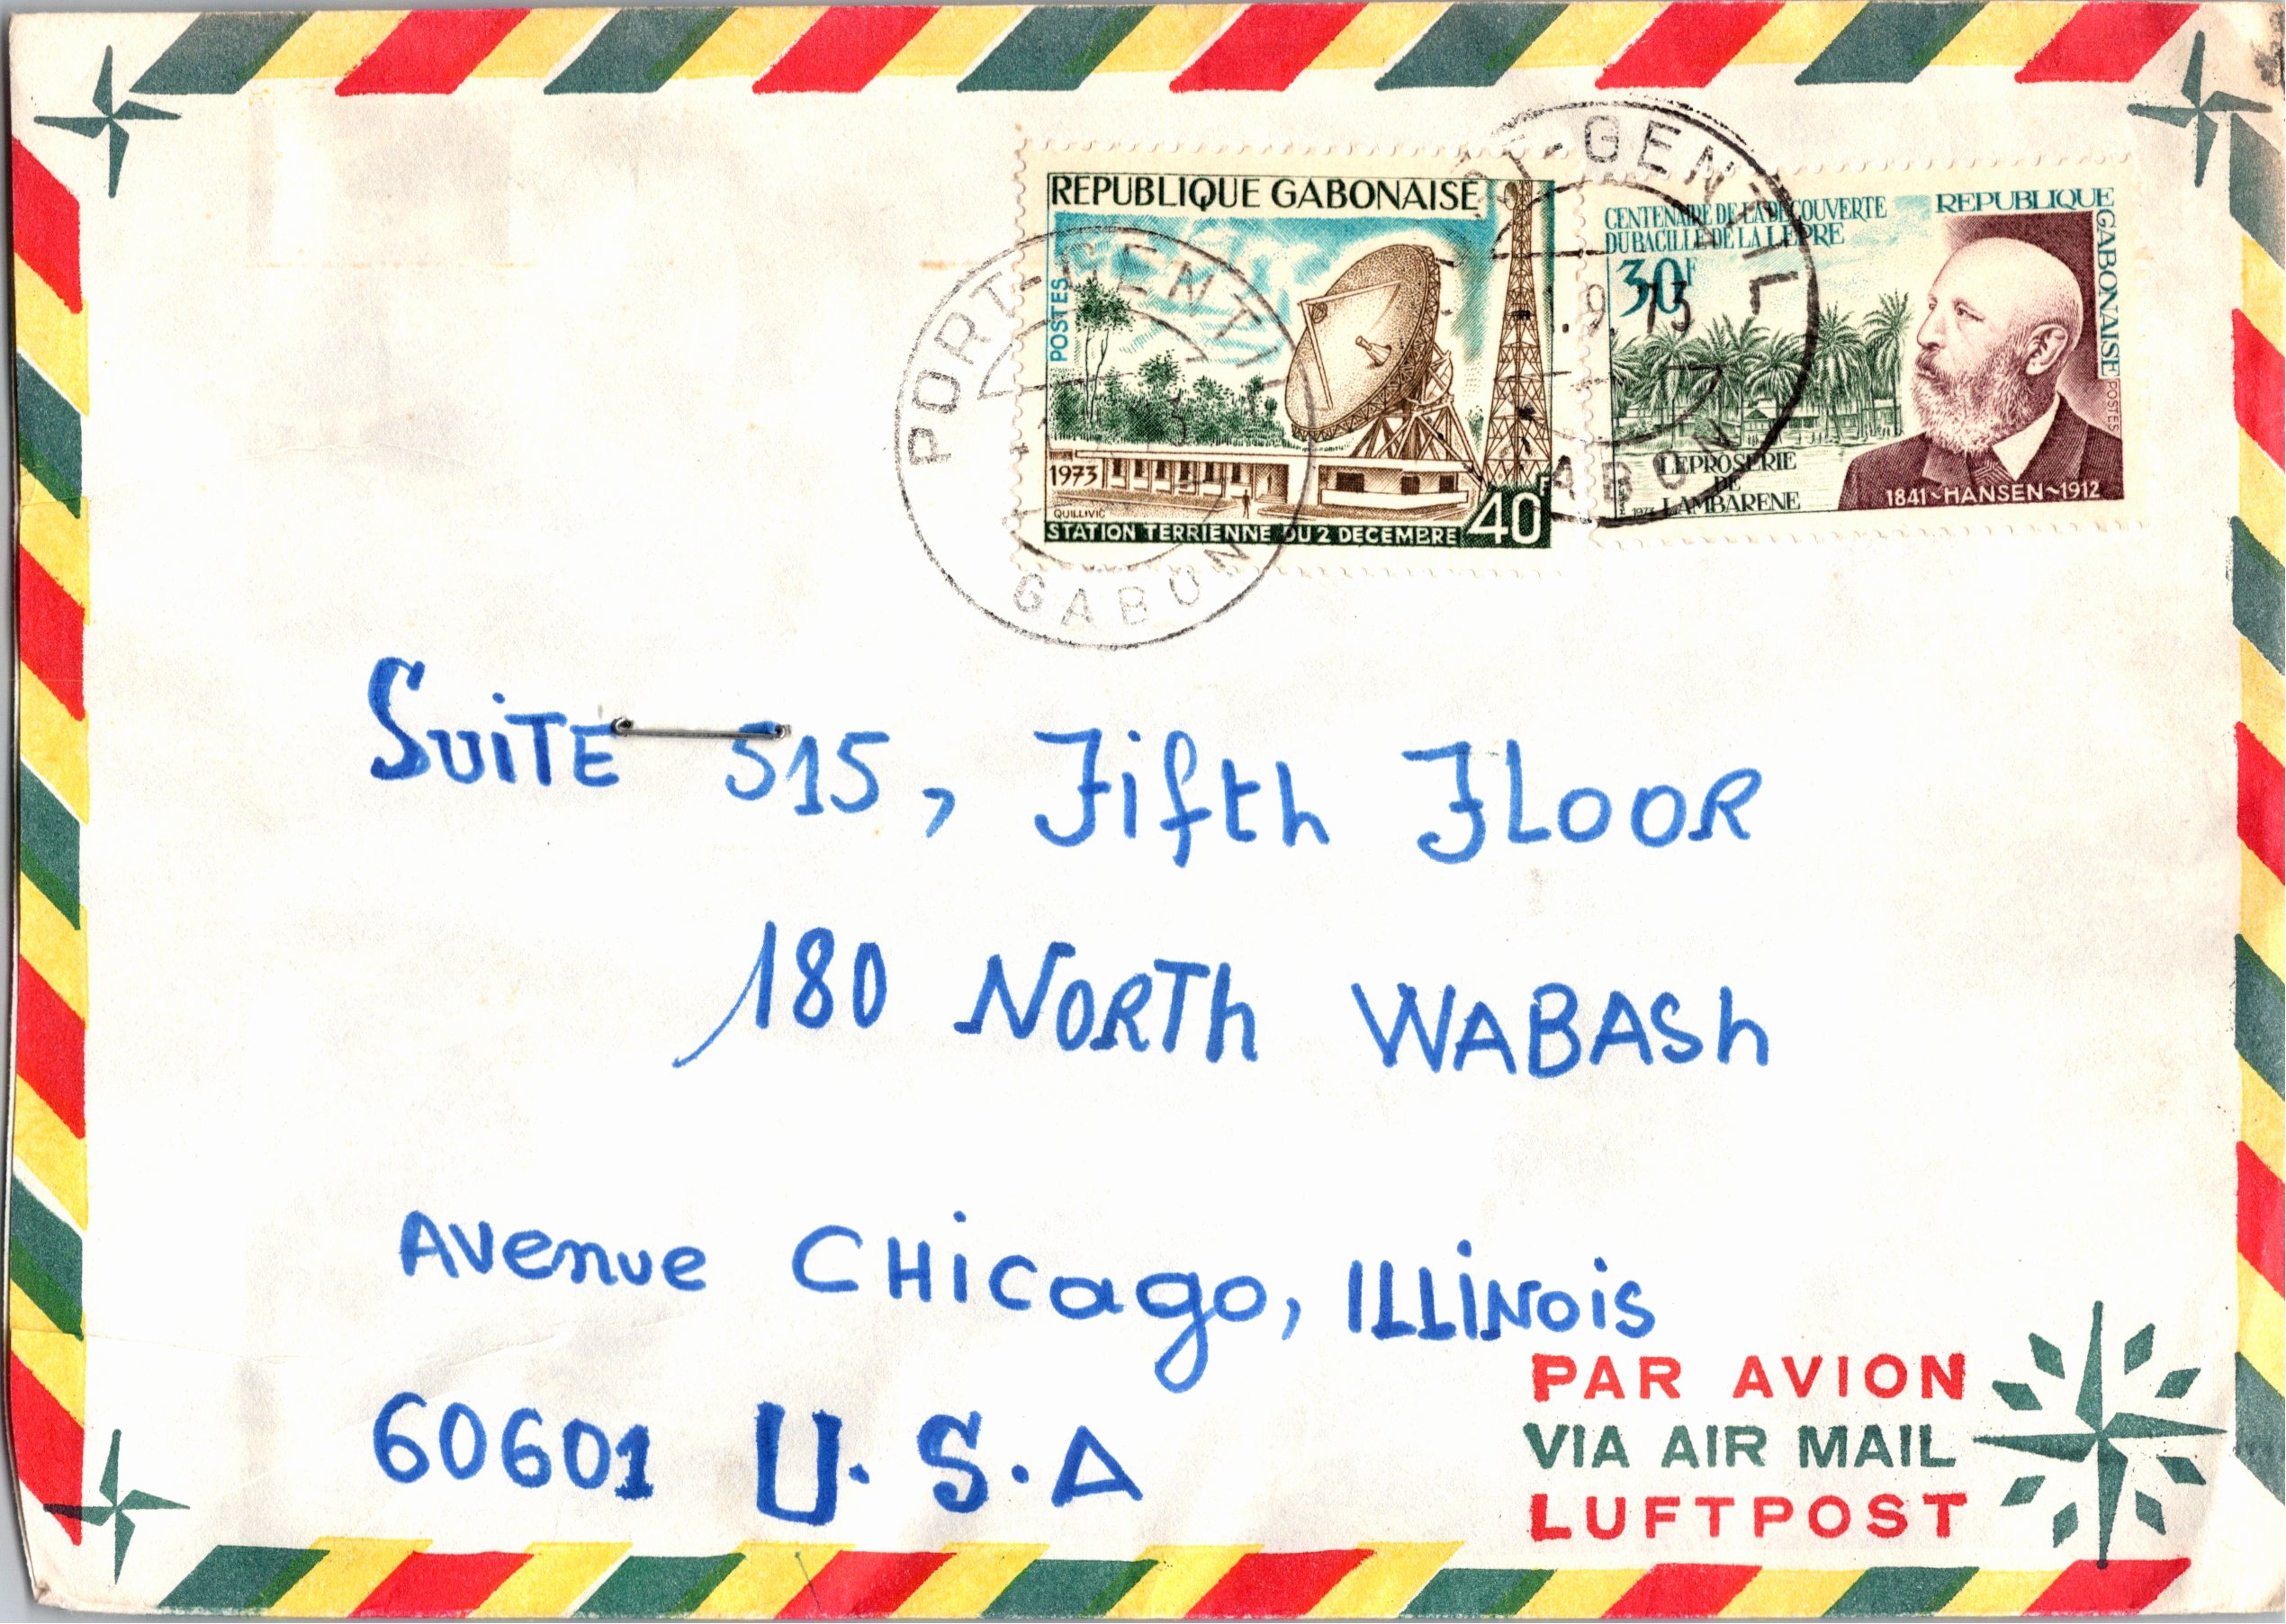 REPUBLIQUE GABONAISE
POSTES
1973
QUILLIVIC
40F
STATION TERRIENNE DU 2 DECEMBRE
CENTENAIRE DE LA DECOUVERTE
DU BACILLE DE LA LEPRE
30F
REPUBLIQUE
GABONAISE
POSTES
LEPROSERIE
DE
LAMBARENE
1973
1841~HANSEN~1912
PORT-GENTIL
GABON
-GENTIL
.9.73
GABON
SUiTE 515, Fifth FLOOR
180 NORTh WABASh
AVenue CHicago, ILLiNois
60601 U.S.A
PAR AVION
VIA AIR MAIL
LUFTPOST